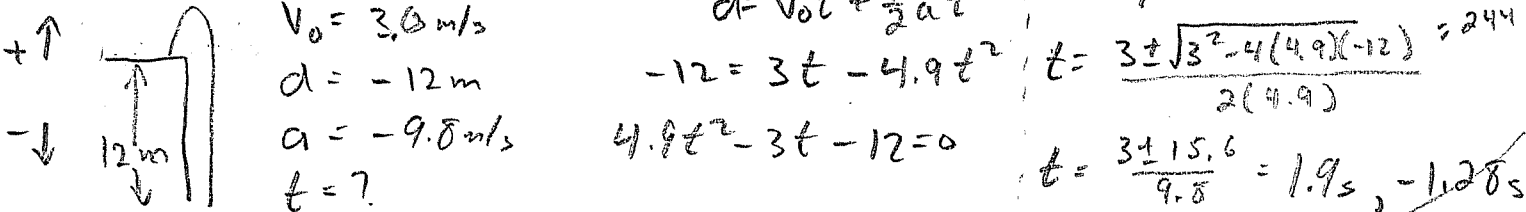 +↑
-↓
12m
V₀ = 3.0 m/s
d = -12m
a = -9.8m/s
t = ?
d = V₀t + ½at²
-12 = 3t - 4.9t²
4.9t² - 3t - 12 = 0
t = (3 ± √(3² - 4(4.9)(-12))) / 2(4.9) = 244
t = (3 ± 15.6) / 9.8 = 1.9s, -1.28s